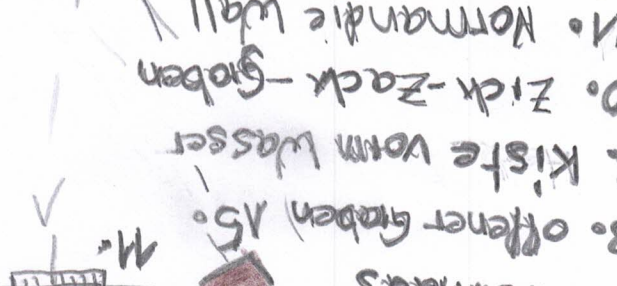 8. offener Graben 15.
11.
. Kiste vorm Wasser
0. Zick-Zack-Graben
1. Normandie Wall